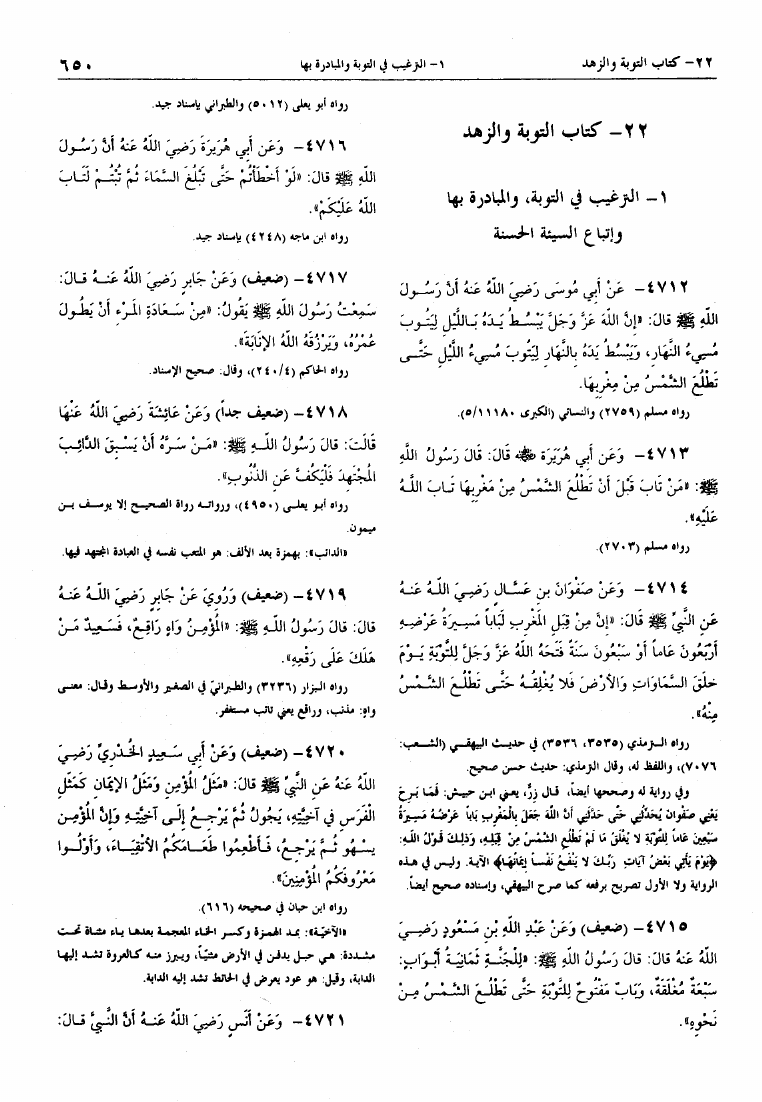 ٢٢- كتاب التوبة والزهد
١- الترغيب في التوبة والمبادرة بها
٦٥٠
٢٢- كتاب التوبة والزهد
١- الترغيب في التوبة، والمبادرة بها
وإتباع السيئة الحسنة
٤٧١٢- عَنْ أَبِي مُوسَى رَضِيَ اللَّهُ عَنهُ أَنَّ رَسُولَ
اللَّهِ ﷺ قَالَ: «إِنَّ اللَّهَ عَزَّ وَجَلَّ يَبْسُطُ يَدَهُ بِاللَّيْلِ لِيَتُوبَ
مُسِيءُ النَّهَارِ، وَيَبْسُطُ يَدَهُ بِالنَّهَارِ لِيَتُوبَ مُسِيءُ اللَّيْلِ حَتَّى
تَطْلُعَ الشَّمْسُ مِنْ مِغْرِبِهَا.
رواه مسلم (٢٧٥٩) والنسائي (الكبرى ٥/١١١٨٠).
٤٧١٣- وَعَن أَبِي هُرَيْرَةَ ﷺ قَالَ: قَالَ رَسُولُ اللَّهِ
ﷺ: «مَنْ تَابَ قَبْلَ أَنْ تَطْلُعَ الشَّمْسُ مِنْ مَغْرِبِهَا تَابَ اللَّهُ
عَلَيْهِ».
رواه مسلم (٢٧٠٣).
٤٧١٤- وَعَنْ صَفْوَانَ بنِ عَسَّالٍ رَضِيَ اللَّهُ عَنهُ
عَنِ النَّبِيِّ ﷺ قَالَ: «إِنَّ مِنْ قِبَلِ المَغْرِبِ لَبَاباً مَسِيرَةُ عَرْضِهِ
أَرْبَعُونَ عَاماً أَوْ سَبْعُونَ سَنَةً فَتَحَهُ اللَّهُ عَزَّ وَجَلَّ لِلتَّوْبَةِ يَوْمَ
خَلَقَ السَّمَاوَاتِ وَالأَرْضَ فَلَا يُغْلِقُهُ حَتَّى تَطْلُعَ الشَّمْسُ
مِنْهُ».
رواه الترمذي (٣٥٣٥، ٣٥٣٦) في حديث البيهقي (الشعب:
٧٠٧٦)، واللفظ له، وقال الترمذي: حديث حسن صحيح.
وفي رواية له وصححها أيضاً، قال زِرٌّ، يعني ابن حبيش: فَمَا بَرِحَ
يَعْنِي صَفْوَان يُحَدِّثُنِي حَتَّى حَدَّثَنِي أَنَّ اللَّهَ جَعَلَ بِالْمَغْرِبِ بَاباً عَرْضُهُ مَسِيرَةُ
سَبْعِينَ عَاماً لِلتَّوْبَةِ لَا يُغْلَقُ مَا لَمْ تَطْلُعِ الشَّمْسُ مِنْ قِبَلِهِ، وَذلِكَ قَوْلُ اللَّهِ:
﴿يَوْمَ يَأْتِي بَعْضُ آيَاتِ رَبِّكَ لَا يَنْفَعُ نَفْساً إِيمَانُهَا﴾ الآية. وليس في هذه
الرواية ولا الأول تصريح برفعه كما صرح البيهقي، وإسناده صحيح أيضاً.
٤٧١٥- (ضعيف) وَعَنْ عَبْدِ اللَّهِ بْنِ مَسْعُودٍ رَضِيَ
اللَّهُ عَنْهُ قَالَ: قَالَ رَسُولُ اللَّهِ ﷺ: «لِلْجَنَّةِ ثَمَانِيَةُ أَبْوَابٍ:
سَبْعَةٌ مُغْلَقَةٌ، وَبَابٌ مَفْتُوحٌ لِلتَّوْبَةِ حَتَّى تَطْلُعَ الشَّمْسُ مِنْ
نَحْوِهِ».
رواه أبو يعلى (٥٠١٢) والطبراني بإسناد جيد.
٤٧١٦- وَعَن أَبِي هُرَيْرَةَ رَضِيَ اللَّهُ عَنهُ أَنَّ رَسُولَ
اللَّهِ ﷺ قَالَ: «لَوْ أَخْطَأْتُمْ حَتَّى تَبْلُغَ السَّمَاءَ ثُمَّ تُبْتُمْ لَتَابَ
اللَّهُ عَلَيْكُمْ».
رواه ابن ماجه (٤٢٤٨) بإسناد جيد.
٤٧١٧- (ضعيف) وَعَنْ جَابِرٍ رَضِيَ اللَّهُ عَنهُ قَالَ:
سَمِعْتُ رَسُولَ اللَّهِ ﷺ يَقُولُ: «مِنْ سَعَادَةِ الْمَرْءِ أَنْ يَطُولَ
عُمُرُهُ، وَيَرْزُقَهُ اللَّهُ الإِنَابَةَ».
رواه الحاكم (٢٤٠/٤)، وقال: صحيح الإسناد.
٤٧١٨- (ضعيف جداً) وَعَنْ عَائِشَةَ رَضِيَ اللَّهُ عَنْهَا
قَالَتْ: قَالَ رَسُولُ اللَّهِ ﷺ: «مَنْ سَرَّهُ أَنْ يَسْبِقَ الدَّائِبَ
الْمُجْتَهِدَ فَلْيَكُفَّ عَنِ الذُّنُوبِ».
رواه أبو يعلى (٤٩٥٠)، ورواته رواة الصحيح إلا يوسف بن
ميمون.
«الدائب»: بهمزة بعد الألف: هو المتعب نفسه في العبادة المجتهد فيها.
٤٧١٩- (ضعيف) وَرُوِيَ عَنْ جَابِرٍ رَضِيَ اللَّهُ عَنهُ
قَالَ: قَالَ رَسُولُ اللَّهِ ﷺ: «الْمُؤْمِنُ وَاهٍ رَاقِعٌ، فَسَعِيدٌ مَنْ
هَلَكَ عَلَى رَقْعِهِ».
رواه البزار (٣٢٣٦) والطبراني في الصغير والأوسط وقال: معنى
واهٍ: مذنب، وراقع يعني تائب مستغفر.
٤٧٢٠- (ضعيف) وَعَنْ أَبِي سَعِيدٍ الخُدْرِيِّ رَضِيَ
اللَّهُ عَنهُ عَنِ النَّبِيِّ ﷺ قَالَ: «مَثَلُ المُؤْمِنِ وَمَثَلُ الإِيمَانِ كَمَثَلِ
الْفَرَسِ فِي آخِيَّتِهِ، يَجُولُ ثُمَّ يَرْجِعُ إِلَى آخِيَّتِهِ وَإِنَّ الْمُؤْمِنَ
يَسْهُو ثُمَّ يَرْجِعُ، فَأَطْعِمُوا طَعَامَكُمُ الأَتْقِيَاءَ، وَأَوْلُوا
مَعْرُوفَكُمُ الْمُؤْمِنِينَ».
رواه ابن حبان في صحيحه (٦١٦).
«الآخية»: بمد الهمزة وكسر الخاء المعجمة بعدها ياء مثناة تحت
مشددة: هي حبل يدفن في الأرض مثنياً، ويبرز منه كالعروة تشد إليها
الدابة، وقيل: هو عود يعرض في الحائط تشد إليه الدابة.
٤٧٢١- وَعَنْ أَنَسٍ رَضِيَ اللَّهُ عَنهُ أَنَّ النَّبِيَّ قَالَ: